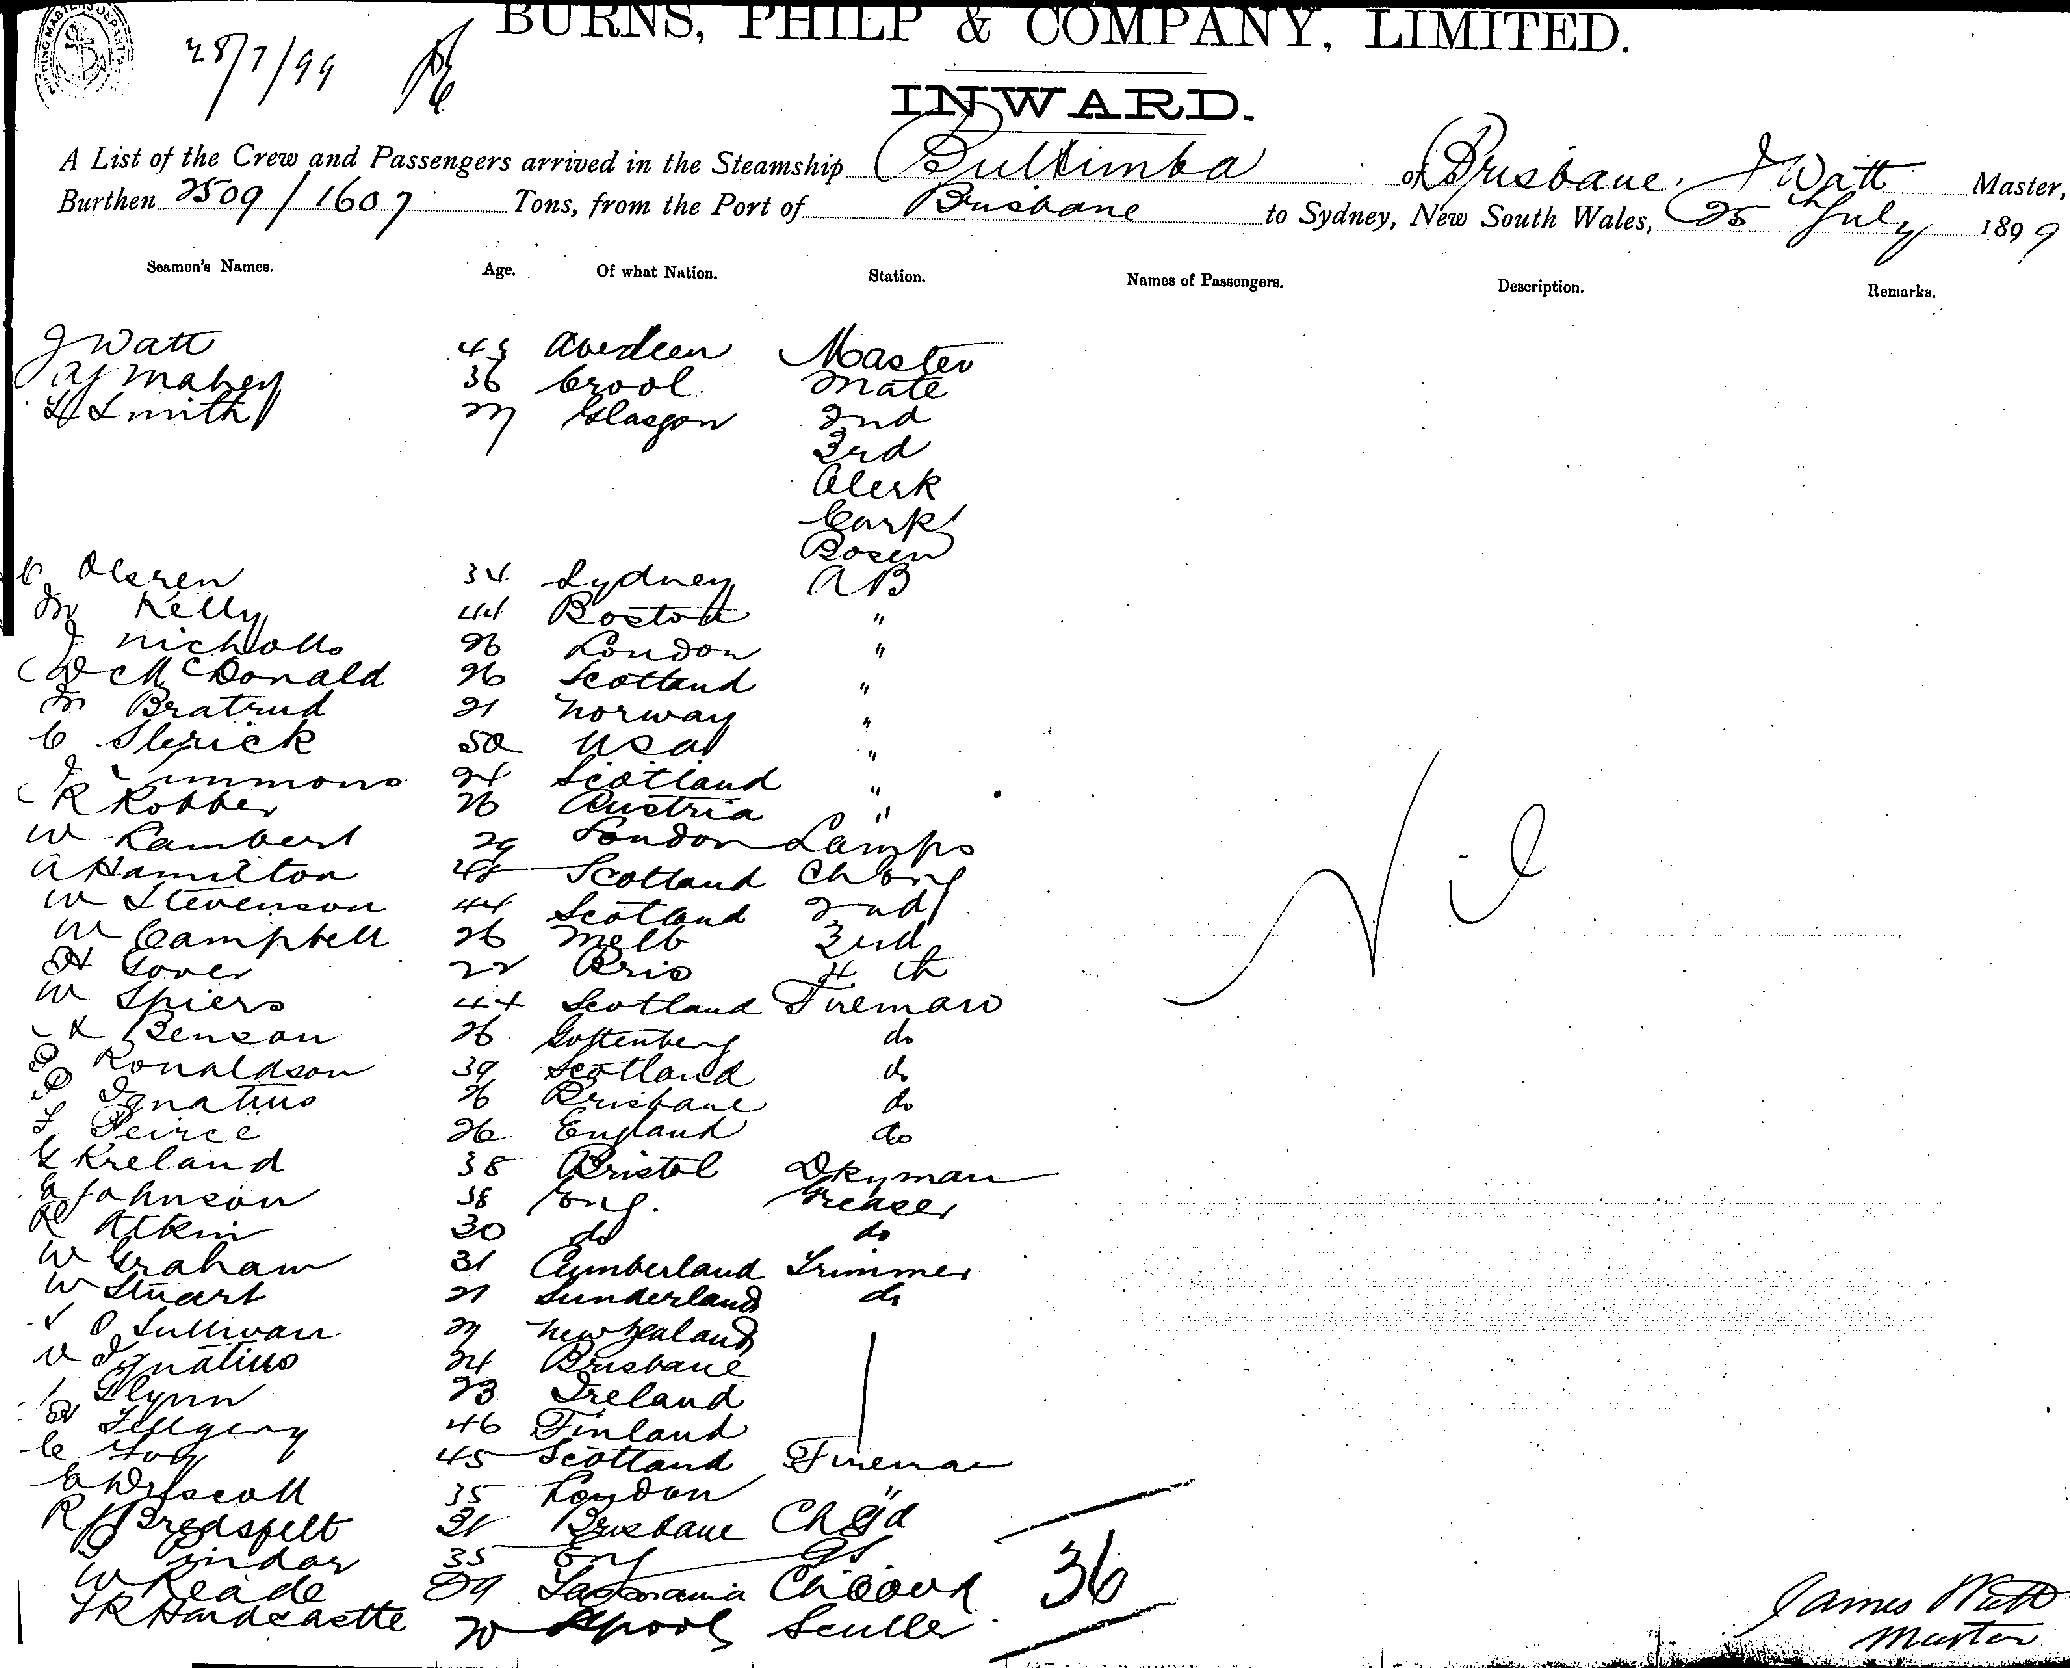 28/7/99
BURNS, PHILP & COMPANY, LIMITED.
INWARD.
A List of the Crew and Passengers arrived in the Steamship Bulkimba of Brisbane, J Watt Master,
Burthen 2509/1607 Tons, from the Port of Brisbane to Sydney, New South Wales, 25th July 1899
Seamen's Names. Age. Of what Nation. Station. Names of Passengers. Description. Remarks.
J Watt 45 Aberdeen Master
Mahey 36 Mate
Smith 27 Glasgow 2nd
3rd
Clerk
Carp
Bosen
C Olsen 34 Sydney AB
M Kelly 44 Boston "
J Nicholls 26 London "
D McDonald 26 Scotland "
M Bratrud 21 Norway "
C Slerick 50 USA "
J Simmons 24 Scotland "
R Robber 26 Austria "
W Lambert 29 London Lamps
A Hamilton 48 Scotland Ch Eng
W Stevenson 44 Scotland 2nd
W Campbell 26 Melb 3rd
H Gover 22 Bris 4th
W Spiers 44 Scotland Fireman
K Benson 26 Gottenberg do
D Ronaldson 39 Scotland do
P Ignatius 26 Brisbane do
F Peirce 26 England do
G Kreland 38 Bristol Dkyman
G Johnson 38 Eng. Greaser
R Atkin 30 do do
W Graham 31 Cumberland Trimmer
W Stuart 21 Sunderland do
O Sullivan 29 New Zealand
V Ignatius 24 Brisbane
Glynn 23 Ireland
46 Finland
C Hoy 45 Scotland Fireman
C Driscoll 35 London "
R Bredsfelt 31 Brisbane
Pindar 35 Eng
W Reade 29 Tasmania
J R Hardcastle 20 Lpool Sculler
Nil
36
James Watt
Master